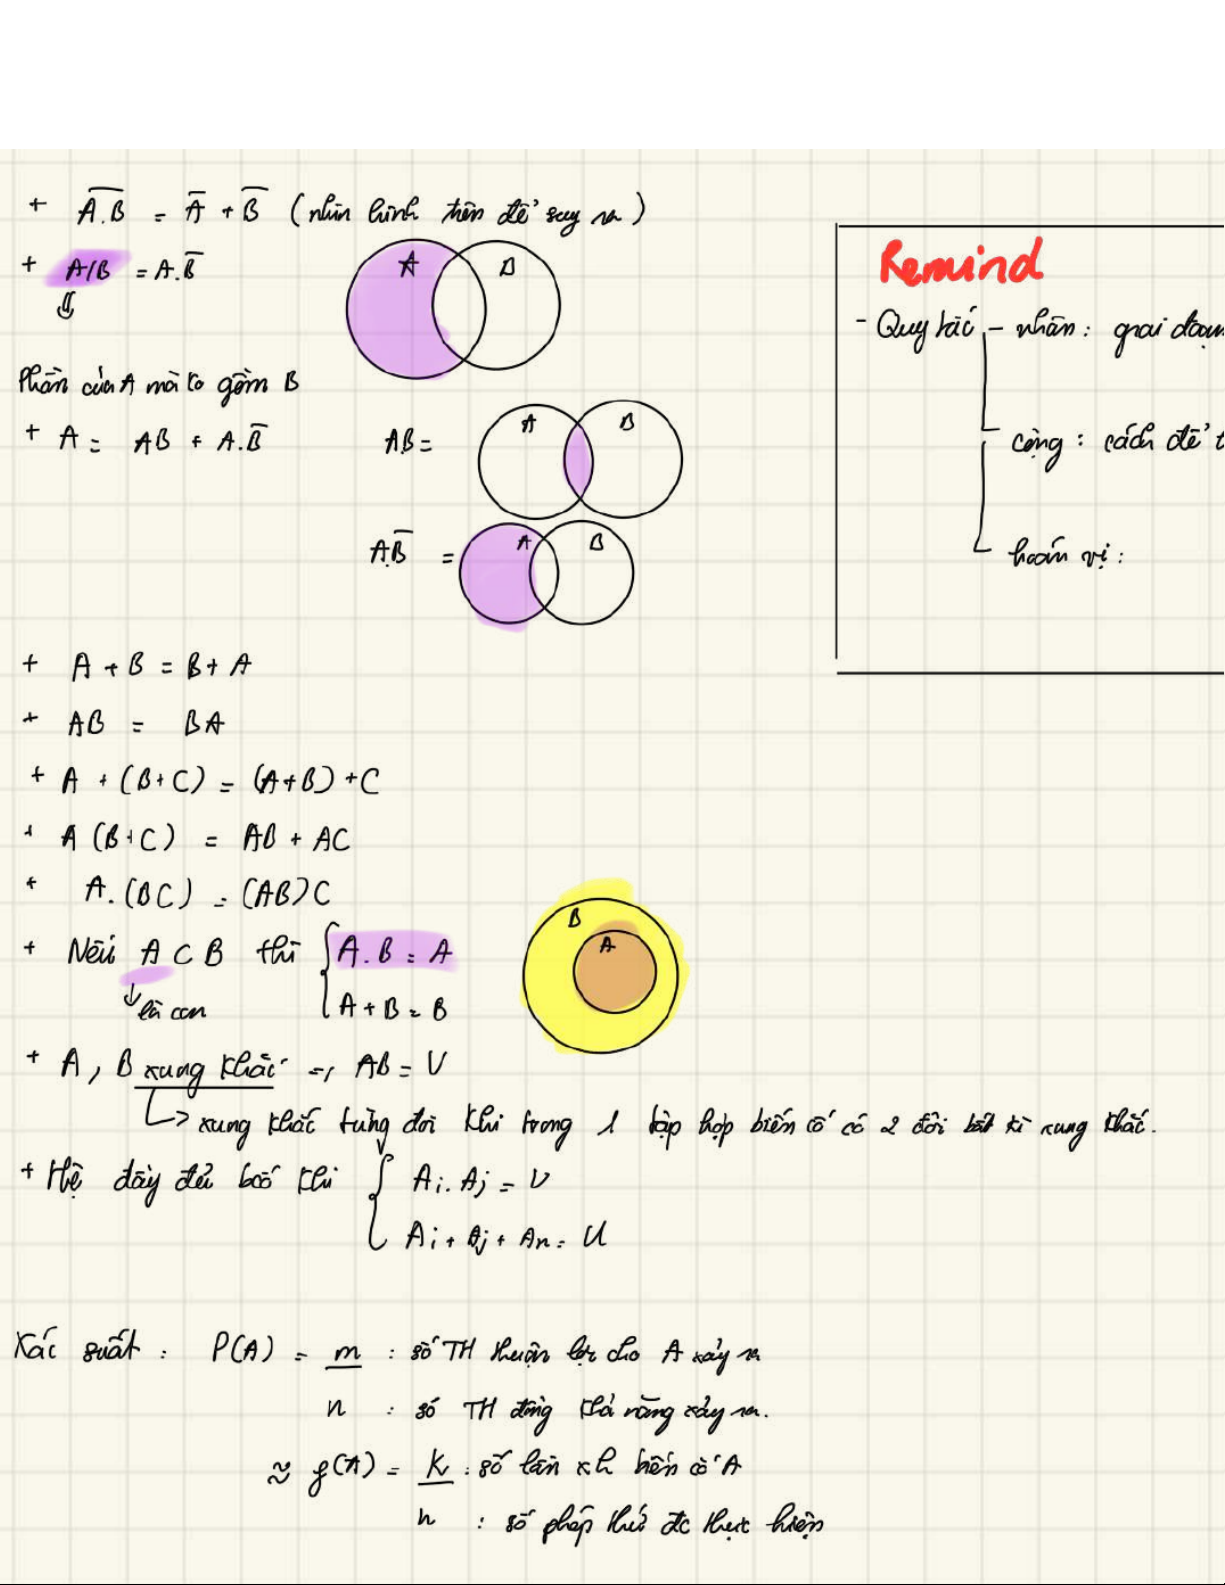 + \overline{A.B} = \overline{A} + \overline{B} (nhìn hình trên để suy ra)
+ A/B = A.\overline{B}
⇓
Phần của A mà ko gồm B
+ A = AB + A.\overline{B}
A B
AB =
A B
A\overline{B} =
A B
Remind
- Quy tắc - nhân : giai đoạn
cộng : cách để t
hoán vị :
+ A + B = B + A
+ AB = BA
+ A + (B+C) = (A+B) + C
+ A (B+C) = AB + AC
+ A. (BC) = (AB) C
+ Nếu A ⊂ B thì { A.B = A
A + B = B
↓ là con
B
A
+ A, B xung khắc => AB = V
↳ xung khắc từng đôi khi trong 1 tập hợp biến cố có 2 đôi bất kì xung khắc.
+ Hệ đầy đủ bcố khi { Ai. Aj = V
Ai + Aj + An = U
Xác suất : P(A) = m : số TH thuận lợi cho A xảy ra
n : số TH đồng khả năng xảy ra.
≈ f(A) = k : số lần xh biến cố A
n : số phép thử đc thực hiện